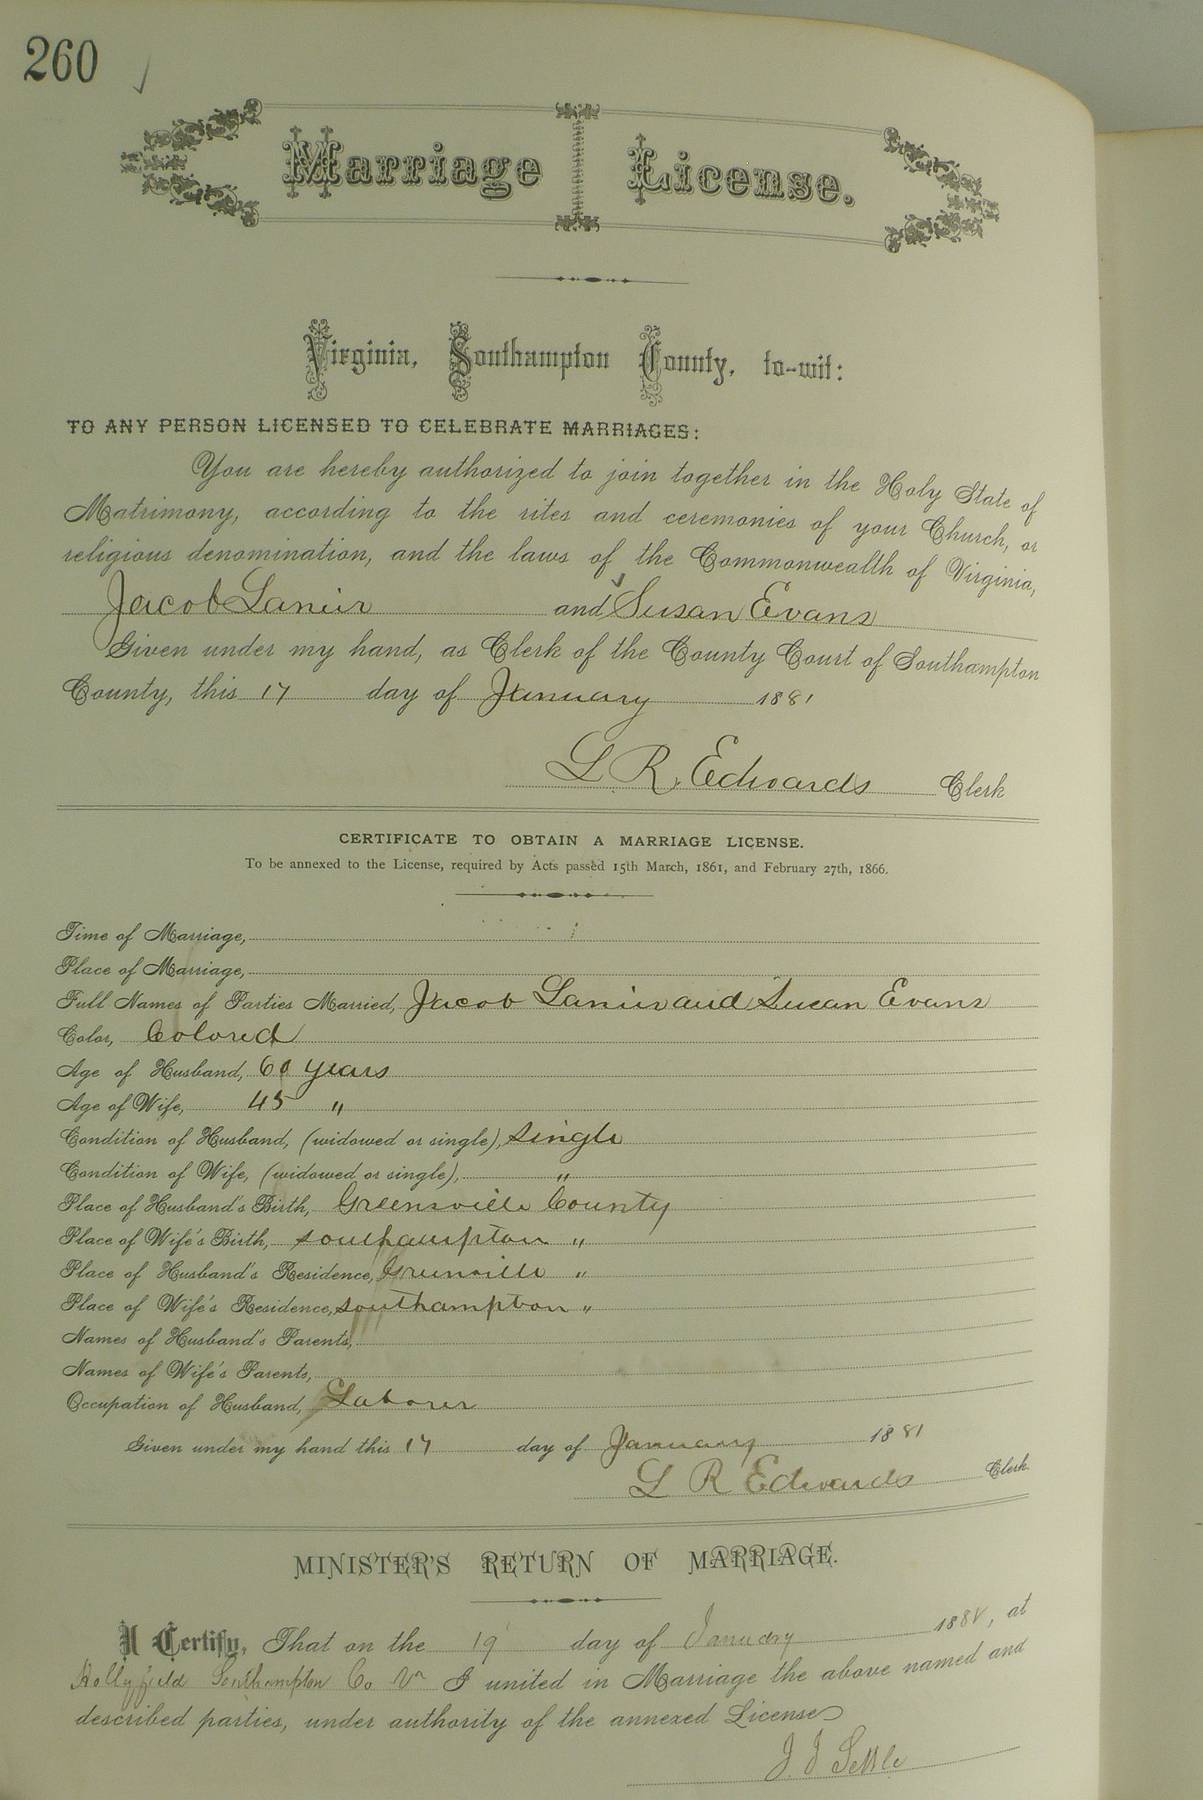 260
Marriage License.
Virginia, Southampton County, to-wit:
TO ANY PERSON LICENSED TO CELEBRATE MARRIAGES:
You are hereby authorized to join together in the Holy State of
Matrimony, according to the rites and ceremonies of your Church, or
religious denomination, and the laws of the Commonwealth of Virginia,
Jacob Lanier and Susan Evans
Given under my hand, as Clerk of the County Court of Southampton
County, this 17 day of January 1881
L R Edwards Clerk
CERTIFICATE TO OBTAIN A MARRIAGE LICENSE.
To be annexed to the License, required by Acts passed 15th March, 1861, and February 27th, 1866.
Time of Marriage,
Place of Marriage,
Full Names of Parties Married, Jacob Lanier and Susan Evans
Color, Colored
Age of Husband, 60 years
Age of Wife, 45 "
Condition of Husband, (widowed or single), single
Condition of Wife, (widowed or single), "
Place of Husband's Birth, Greensville County
Place of Wife's Birth, southampton "
Place of Husband's Residence, Greensville "
Place of Wife's Residence, southampton "
Names of Husband's Parents,
Names of Wife's Parents,
Occupation of Husband, Laborer
Given under my hand this 17 day of January 1881
L R Edwards Clerk.
MINISTER'S RETURN OF MARRIAGE.
I Certify, That on the 19 day of January 188 , at
Hollyfield Southampton Co Va I united in Marriage the above named and
described parties, under authority of the annexed License
J. J.